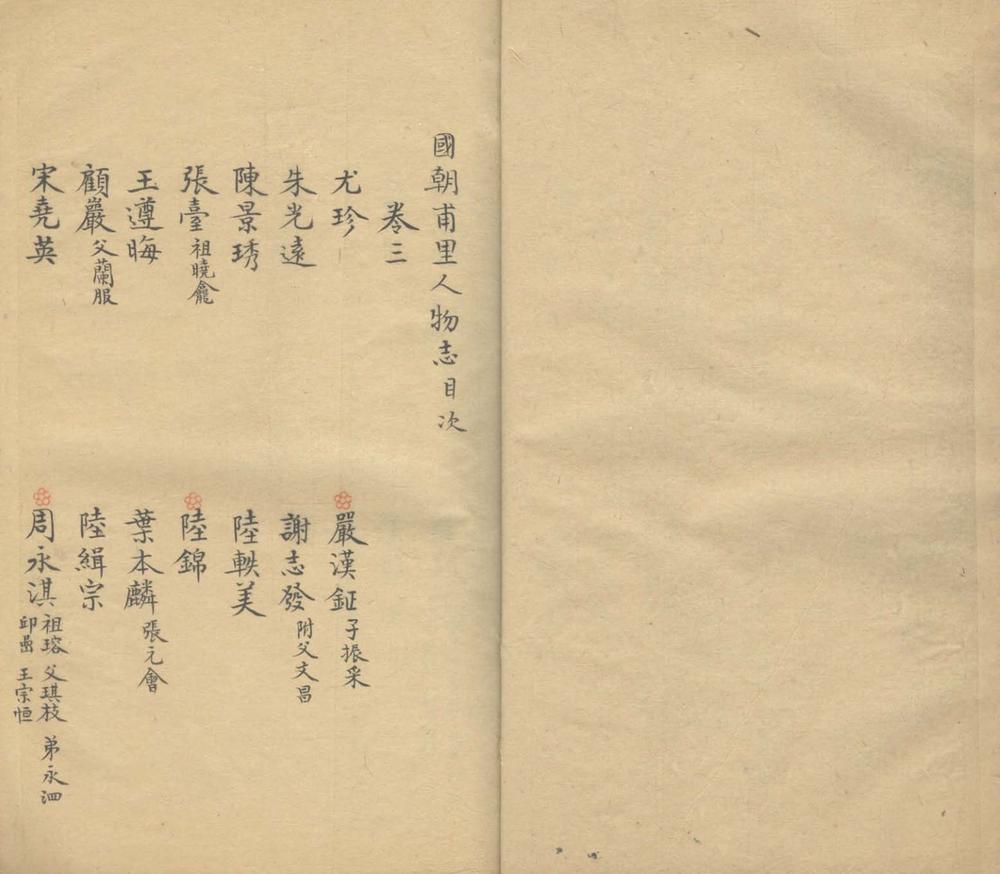 國朝甫里人物志目次
卷三
尤珍 嚴漢鉦 子振采
朱光遠 謝志發 附父文昌
陳景琇 陸軼美
張臺 祖曉龕 陸錦
王遵晦 葉本麟 張元會
顧巖 父蘭服 陸緝宗
宋堯英 周永淇 祖瑢 父琪枝 弟永泗 邱嵒 王宗恒